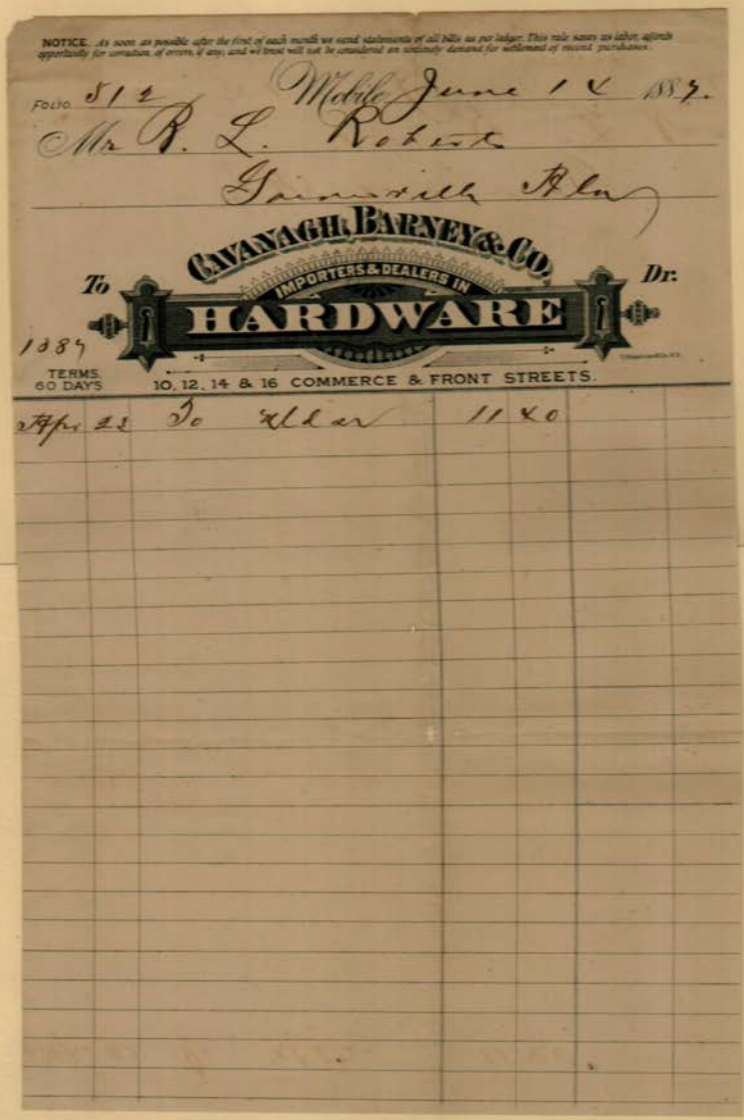 NOTICE. As soon as possible after the first of each month we send statements of all bills as per ledger. This rule saves us labor, affords
opportunity for correction of errors, if any, and we trust will not be considered an untimely demand for settlement of recent purchases.
FOLIO 512 Mobile, June 14 1887.
Mr R. L. Roberts
Gainesville Ala
CAVANAGH, BARNEY & CO.
To IMPORTERS & DEALERS IN Dr.
HARDWARE
1887
TERMS.
60 DAYS 10, 12, 14 & 16 COMMERCE & FRONT STREETS.
Apr 22 To 11 40